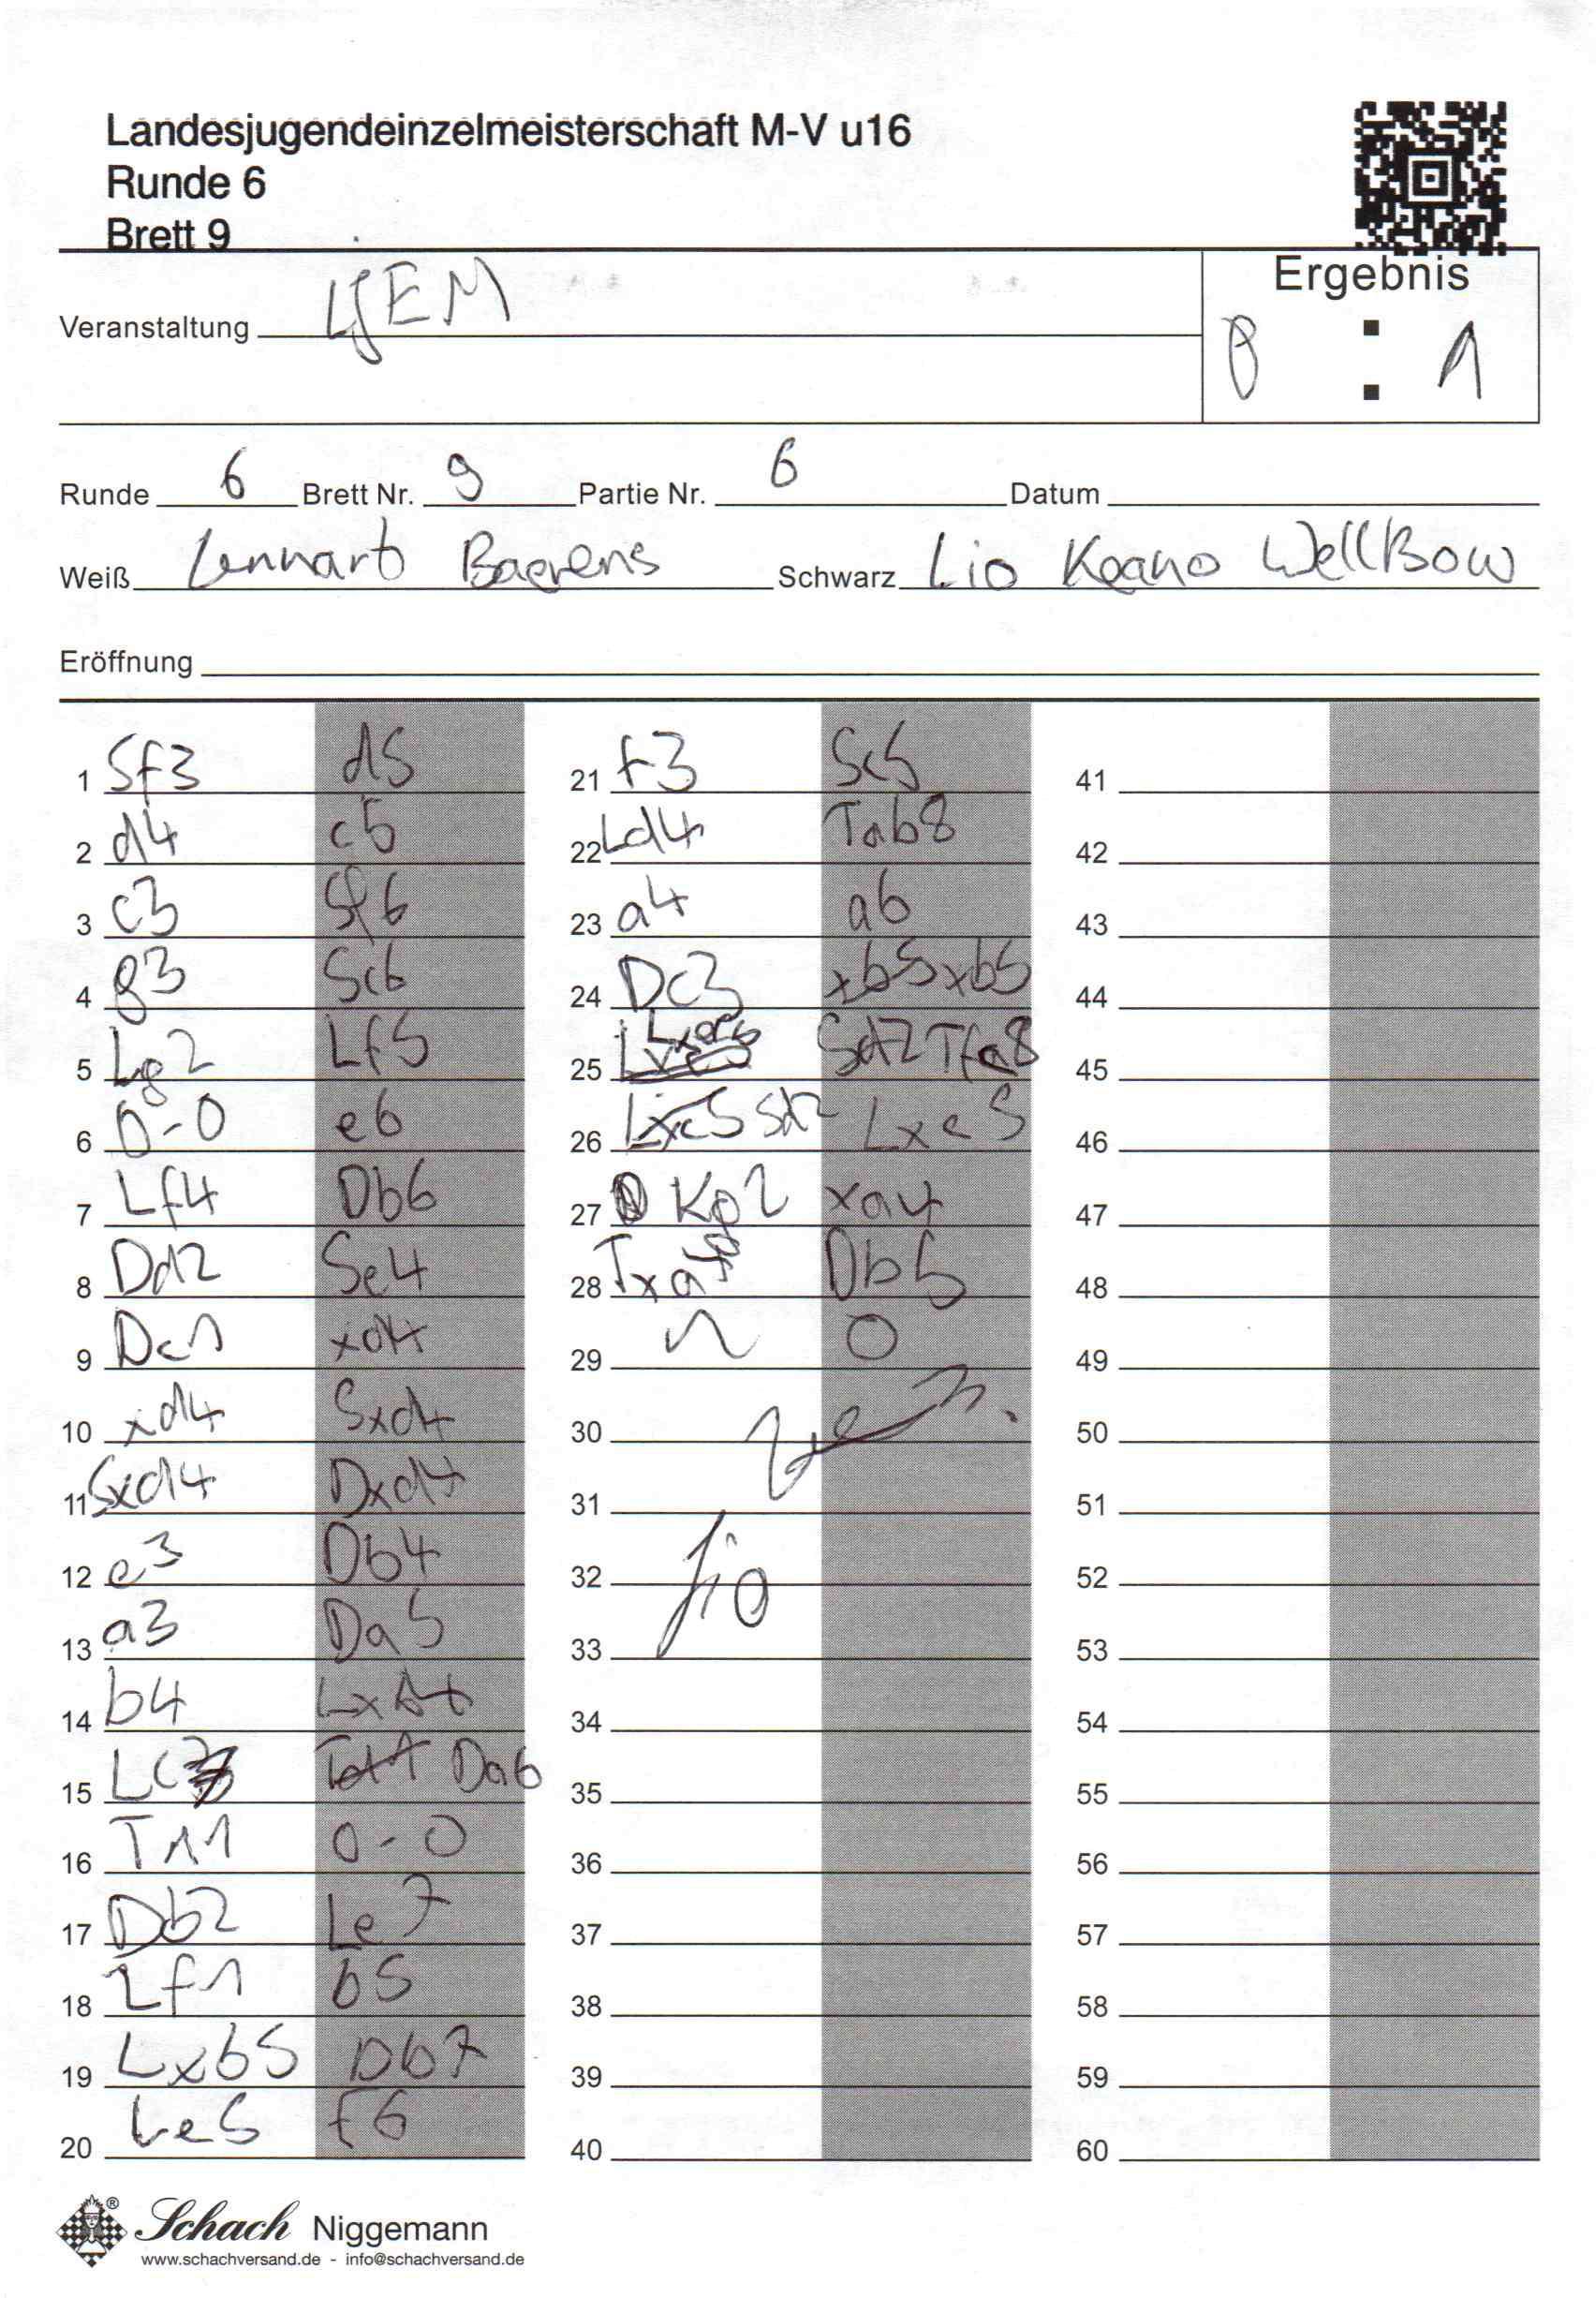 Landesjugendeinzelmeisterschaft M-V u16
Runde 6
Brett 9
Ergebnis
Veranstaltung LJEM
0 : 1
Runde 6 Brett Nr. 9 Partie Nr. 6 Datum
Weiß Lennart Baerens Schwarz Lio Keano Wellbow
Eröffnung
1 Sf3 d5
2 d4 c5
3 c3 Sf6
4 g3 Sc6
5 Lg2 Lf5
6 0-0 e6
7 Lf4 Db6
8 Dd2 Se4
9 Dc1 xd4
10 xd4 Sxd4
11 Sxd4 Dxd4
12 e3 Db4
13 a3 Da5
14 b4 Lxb4
15 Lc7 Da6
16 Td1 0-0
17 Db2 Le7
18 Lf1 b5
19 Lxb5 Db7
20 Le5 f6
21 f3 Sc5
22 Ld4 Tab8
23 a4 a6
24 Dc3 xb5 xb5
25 Tfa8
26 Sd2 Lxe5
27 Kg2 xa4
28 Txa4 Db5
29 0
30
31
32 Lio
33
34
35
36
37
38
39
40
41
42
43
44
45
46
47
48
49
50
51
52
53
54
55
56
57
58
59
60
Schach Niggemann
www.schachversand.de - info@schachversand.de